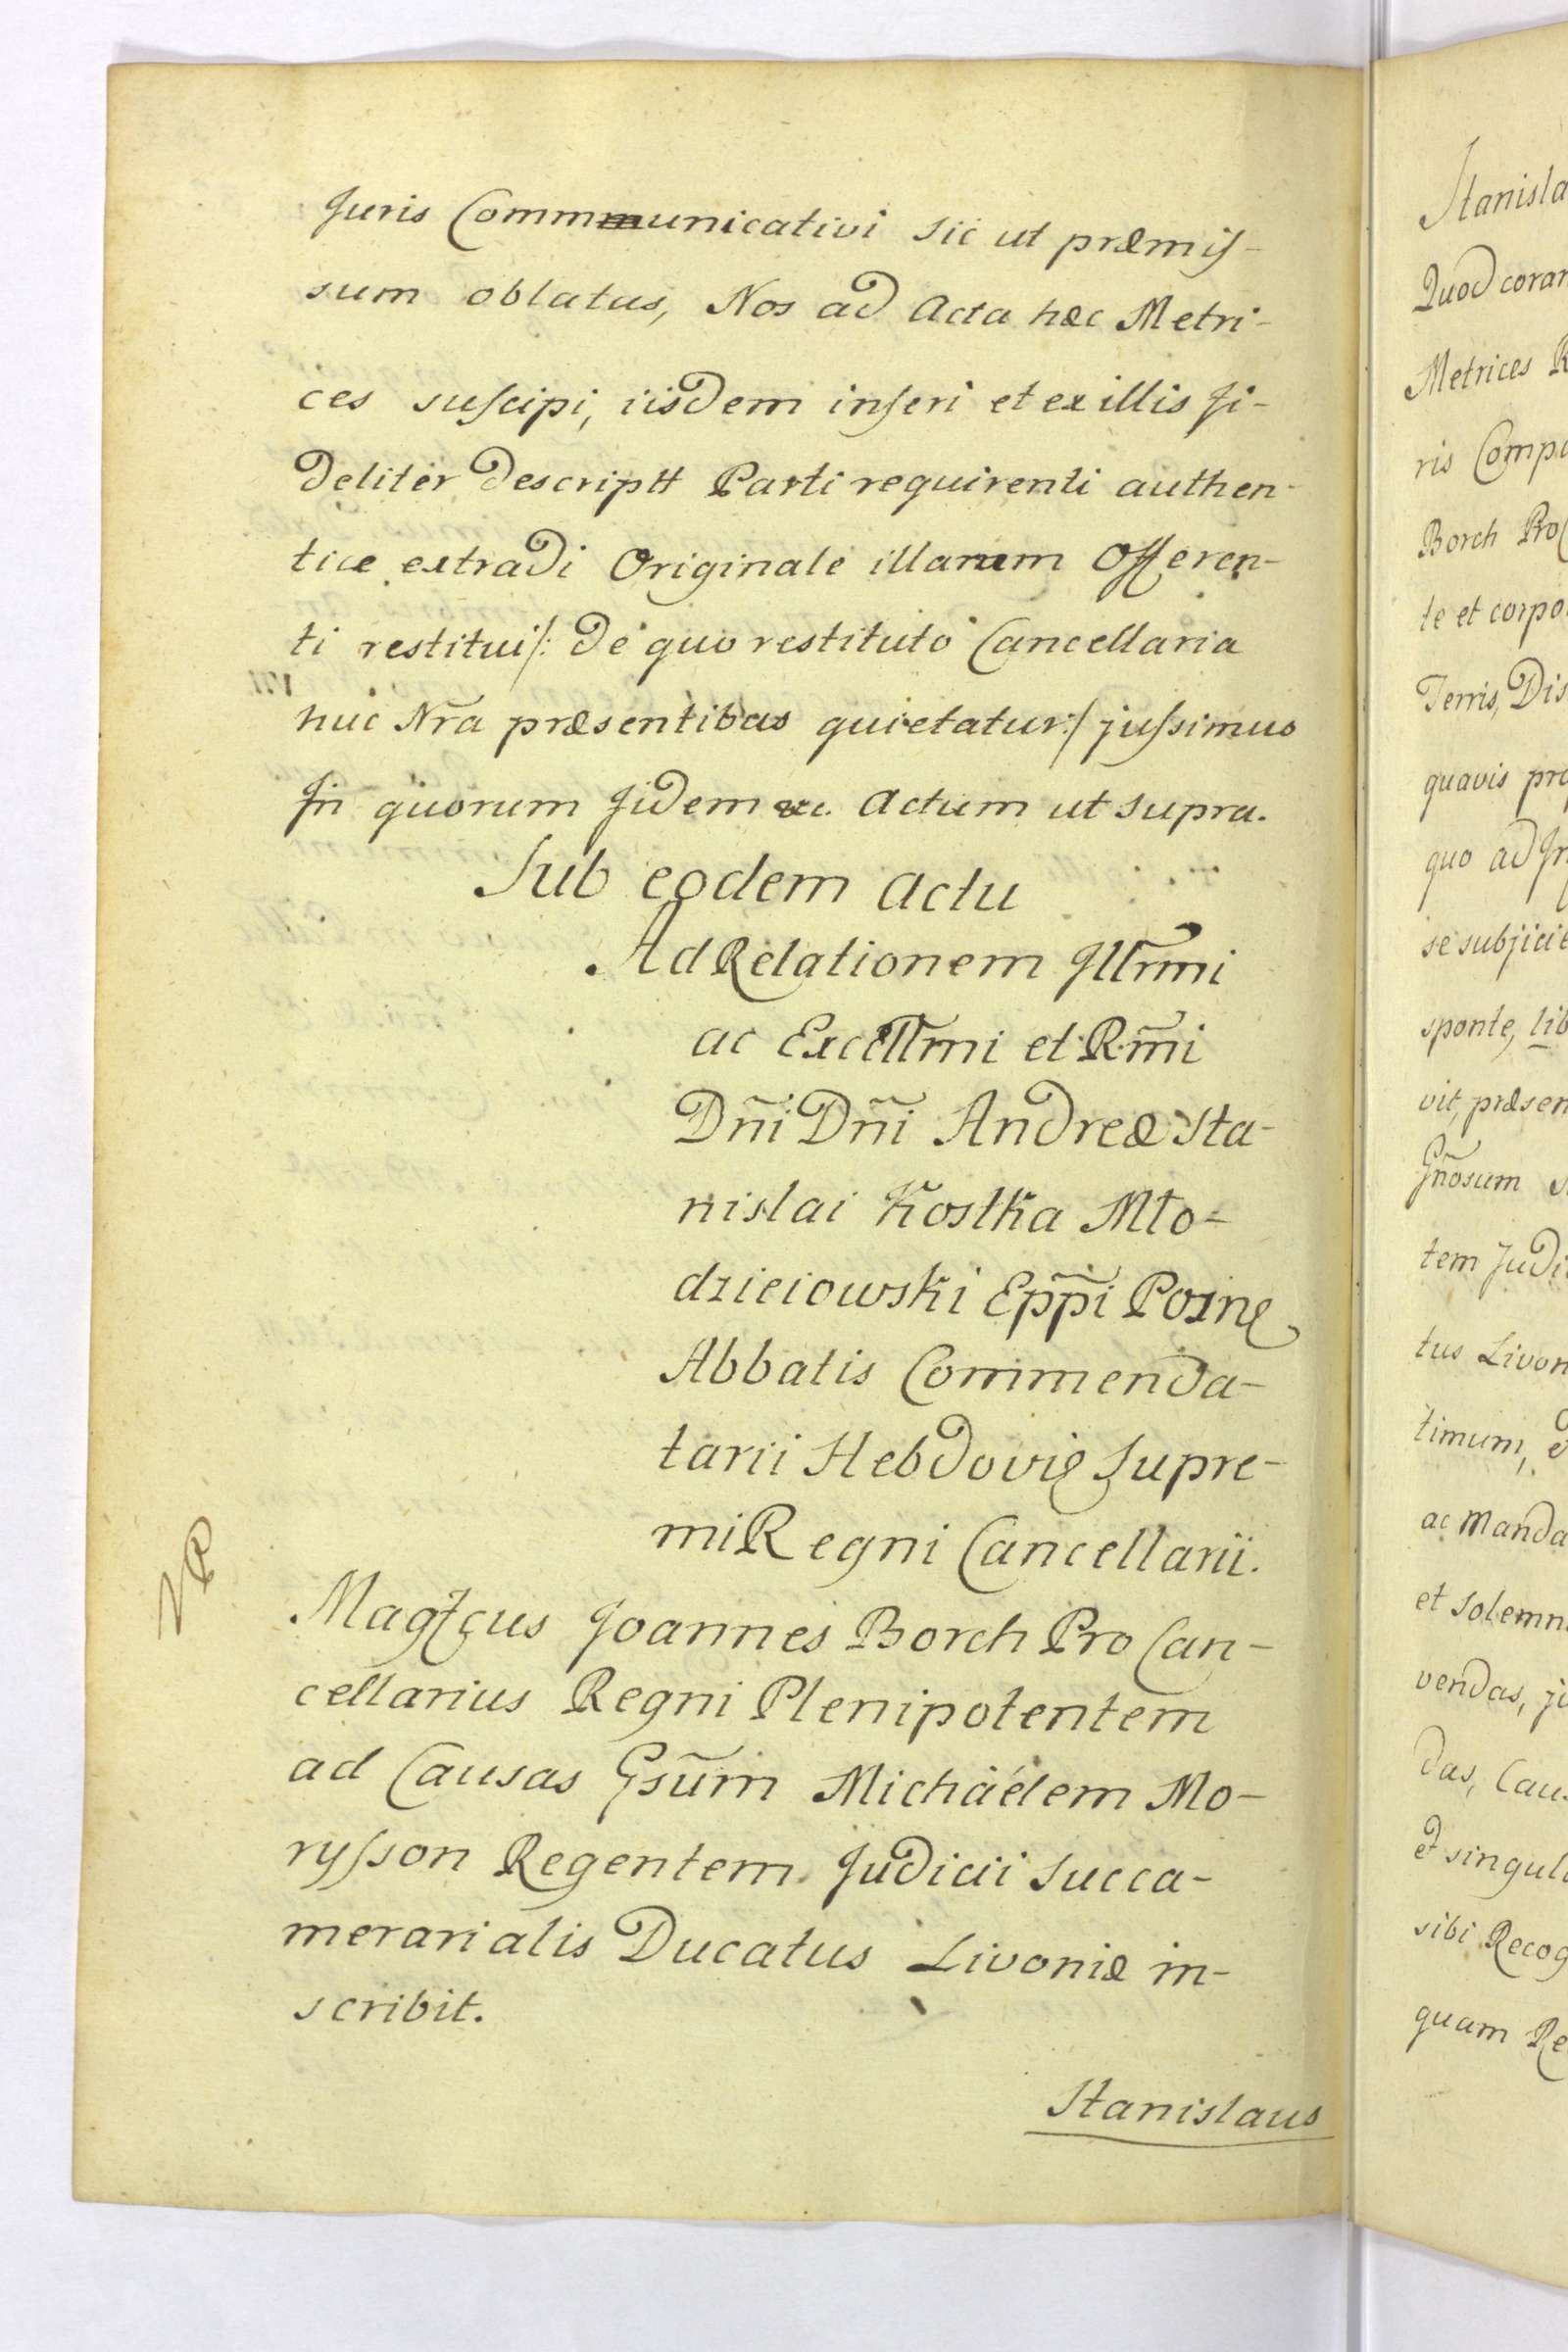 Juris Commmunicativi sic ut præmis-
sum oblatus, Nos ad Acta hæc Metri-
ces suscipi, iisdem inseri et ex illis fi-
deliter descriptt Parti requirenti authen-
tice extradi Originale illarum Offeren-
ti restitui /: de quo restituto Cancellaria
huic Nra præsentibus quietatur :/ jussimus
In quorum fidem &c. Actum ut supra.
Sub eodem Actu
Ad Relationem Illrmi
ac Excellmi et R-mi
Dñi Dñi Andreæ Sta-
nislai Kostka Mło-
dzieiowski Eppi Posnę
Abbatis Commenda-
tarii Hebdovię Supre-
mi Regni Cancellarii.
VP
Magfcus Joannes Borch Pro Can-
cellarius Regni Plenipotentem
ad Causas Gsum Michäélem Mo-
rysson Regentem Judicii Succa-
merarialis Ducatus Livoniæ in-
scribit.
Stanislaus
Stanisla
Quod coram
Metrices R
ris Compa
Borch Pro C
te et corpo
Terris, Dis
quavis pro
quo ad In
se subjicie
sponte, lib
vit, præsen
Gñosum
tem Judi
tus Livon
timum,
ac Manda
et Solemn
vendas, ju
das, Caus
et singula
sibi Recog
quam Re